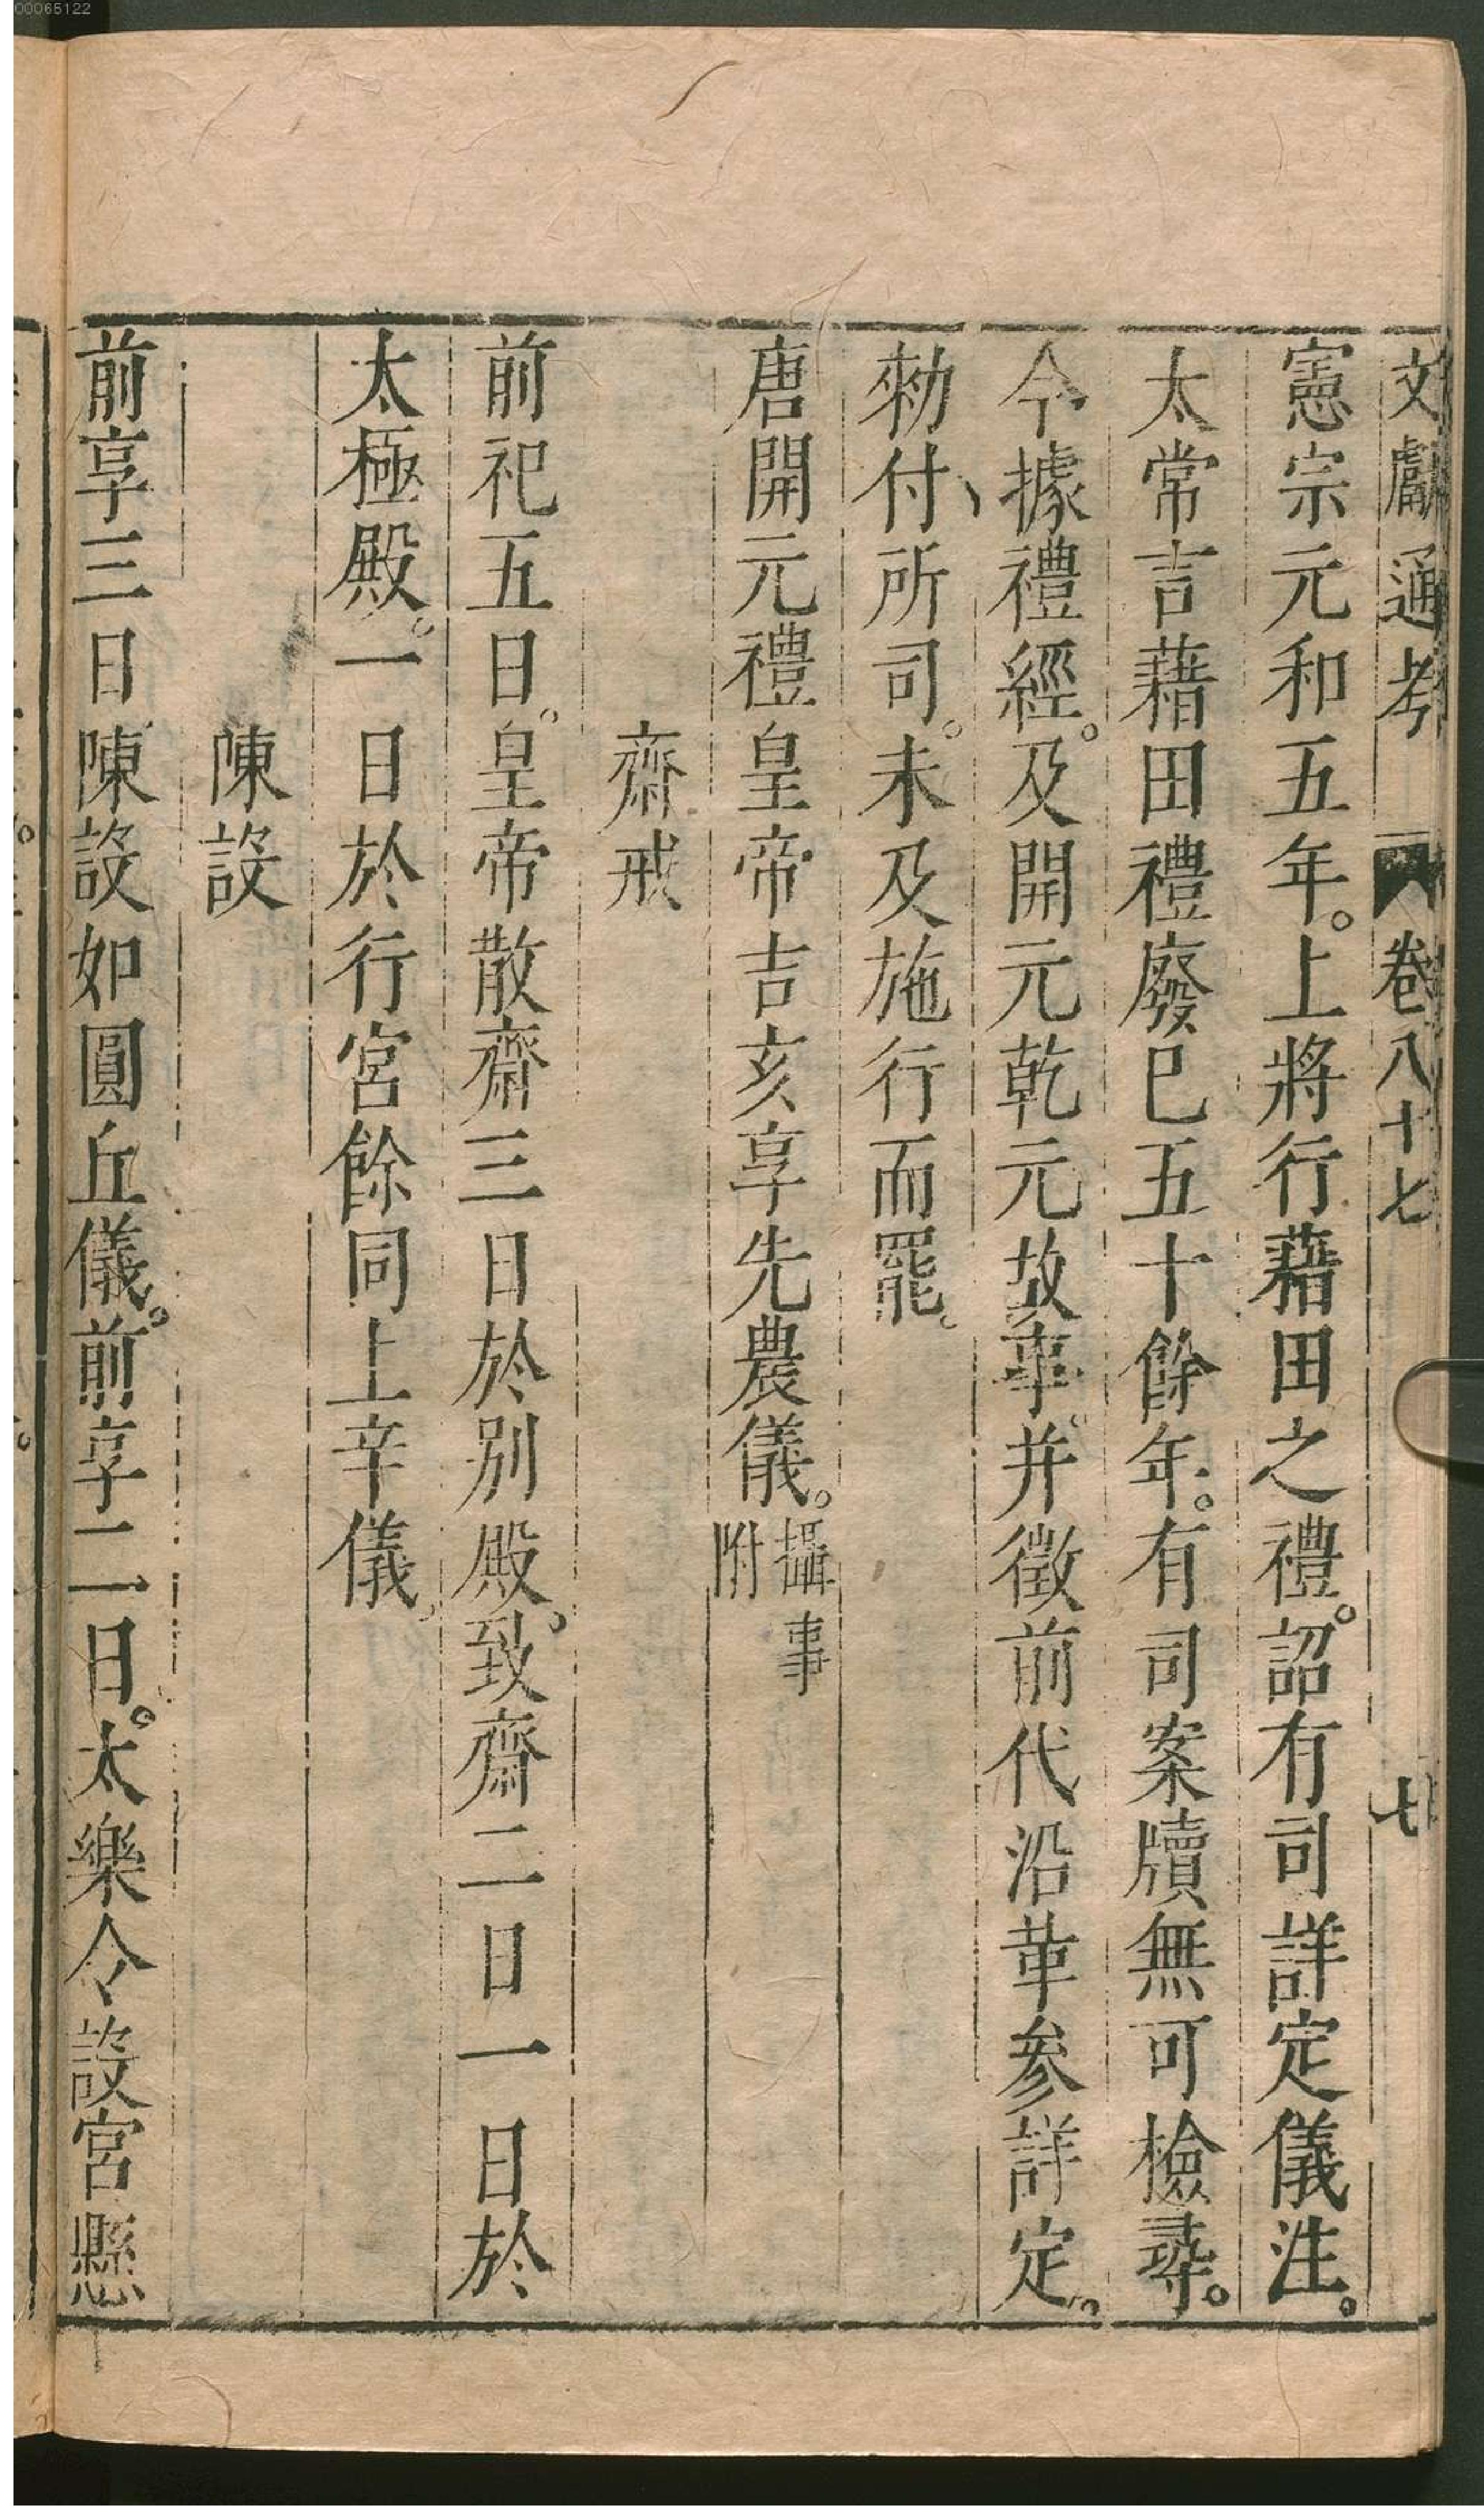 00065122
文獻通考 卷八十七 七
憲宗元和五年。上將行藉田之禮。詔有司詳定儀注。
太常言藉田禮廢巳五十餘年。有司案牘無可檢尋。
今據禮經。及開元乾元故事。并徵前代沿革參詳定。
勑付所司。未及施行而罷。
唐開元禮皇帝吉亥享先農儀。攝事附
齋戒
前祀五日。皇帝散齋三日於別殿。致齋二日一日於
太極殿。一日於行宮餘同上辛儀。
陳設
前享三日陳設如圓丘儀。前享二日。太樂令設宮懸